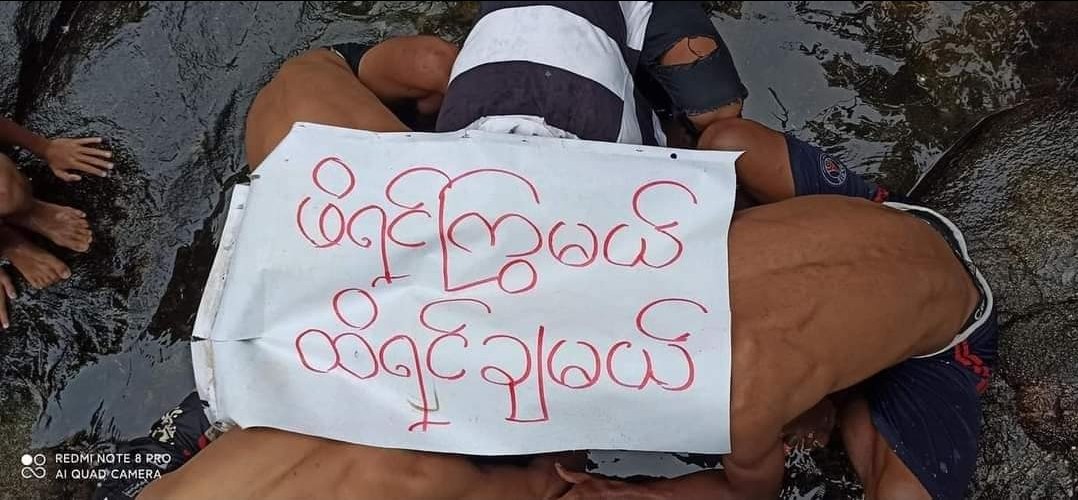 ဖိရင်ကြွမယ်
ထိရှင်ချမယ်
REDMI NOTE 8 PRO
AI QUAD CAMERA